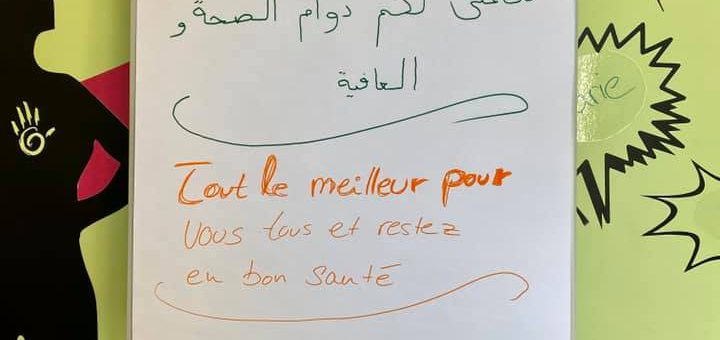 لكم دوام الصحة و
العافية
Tout le meilleur pour
vous tous et restez
en bon santé